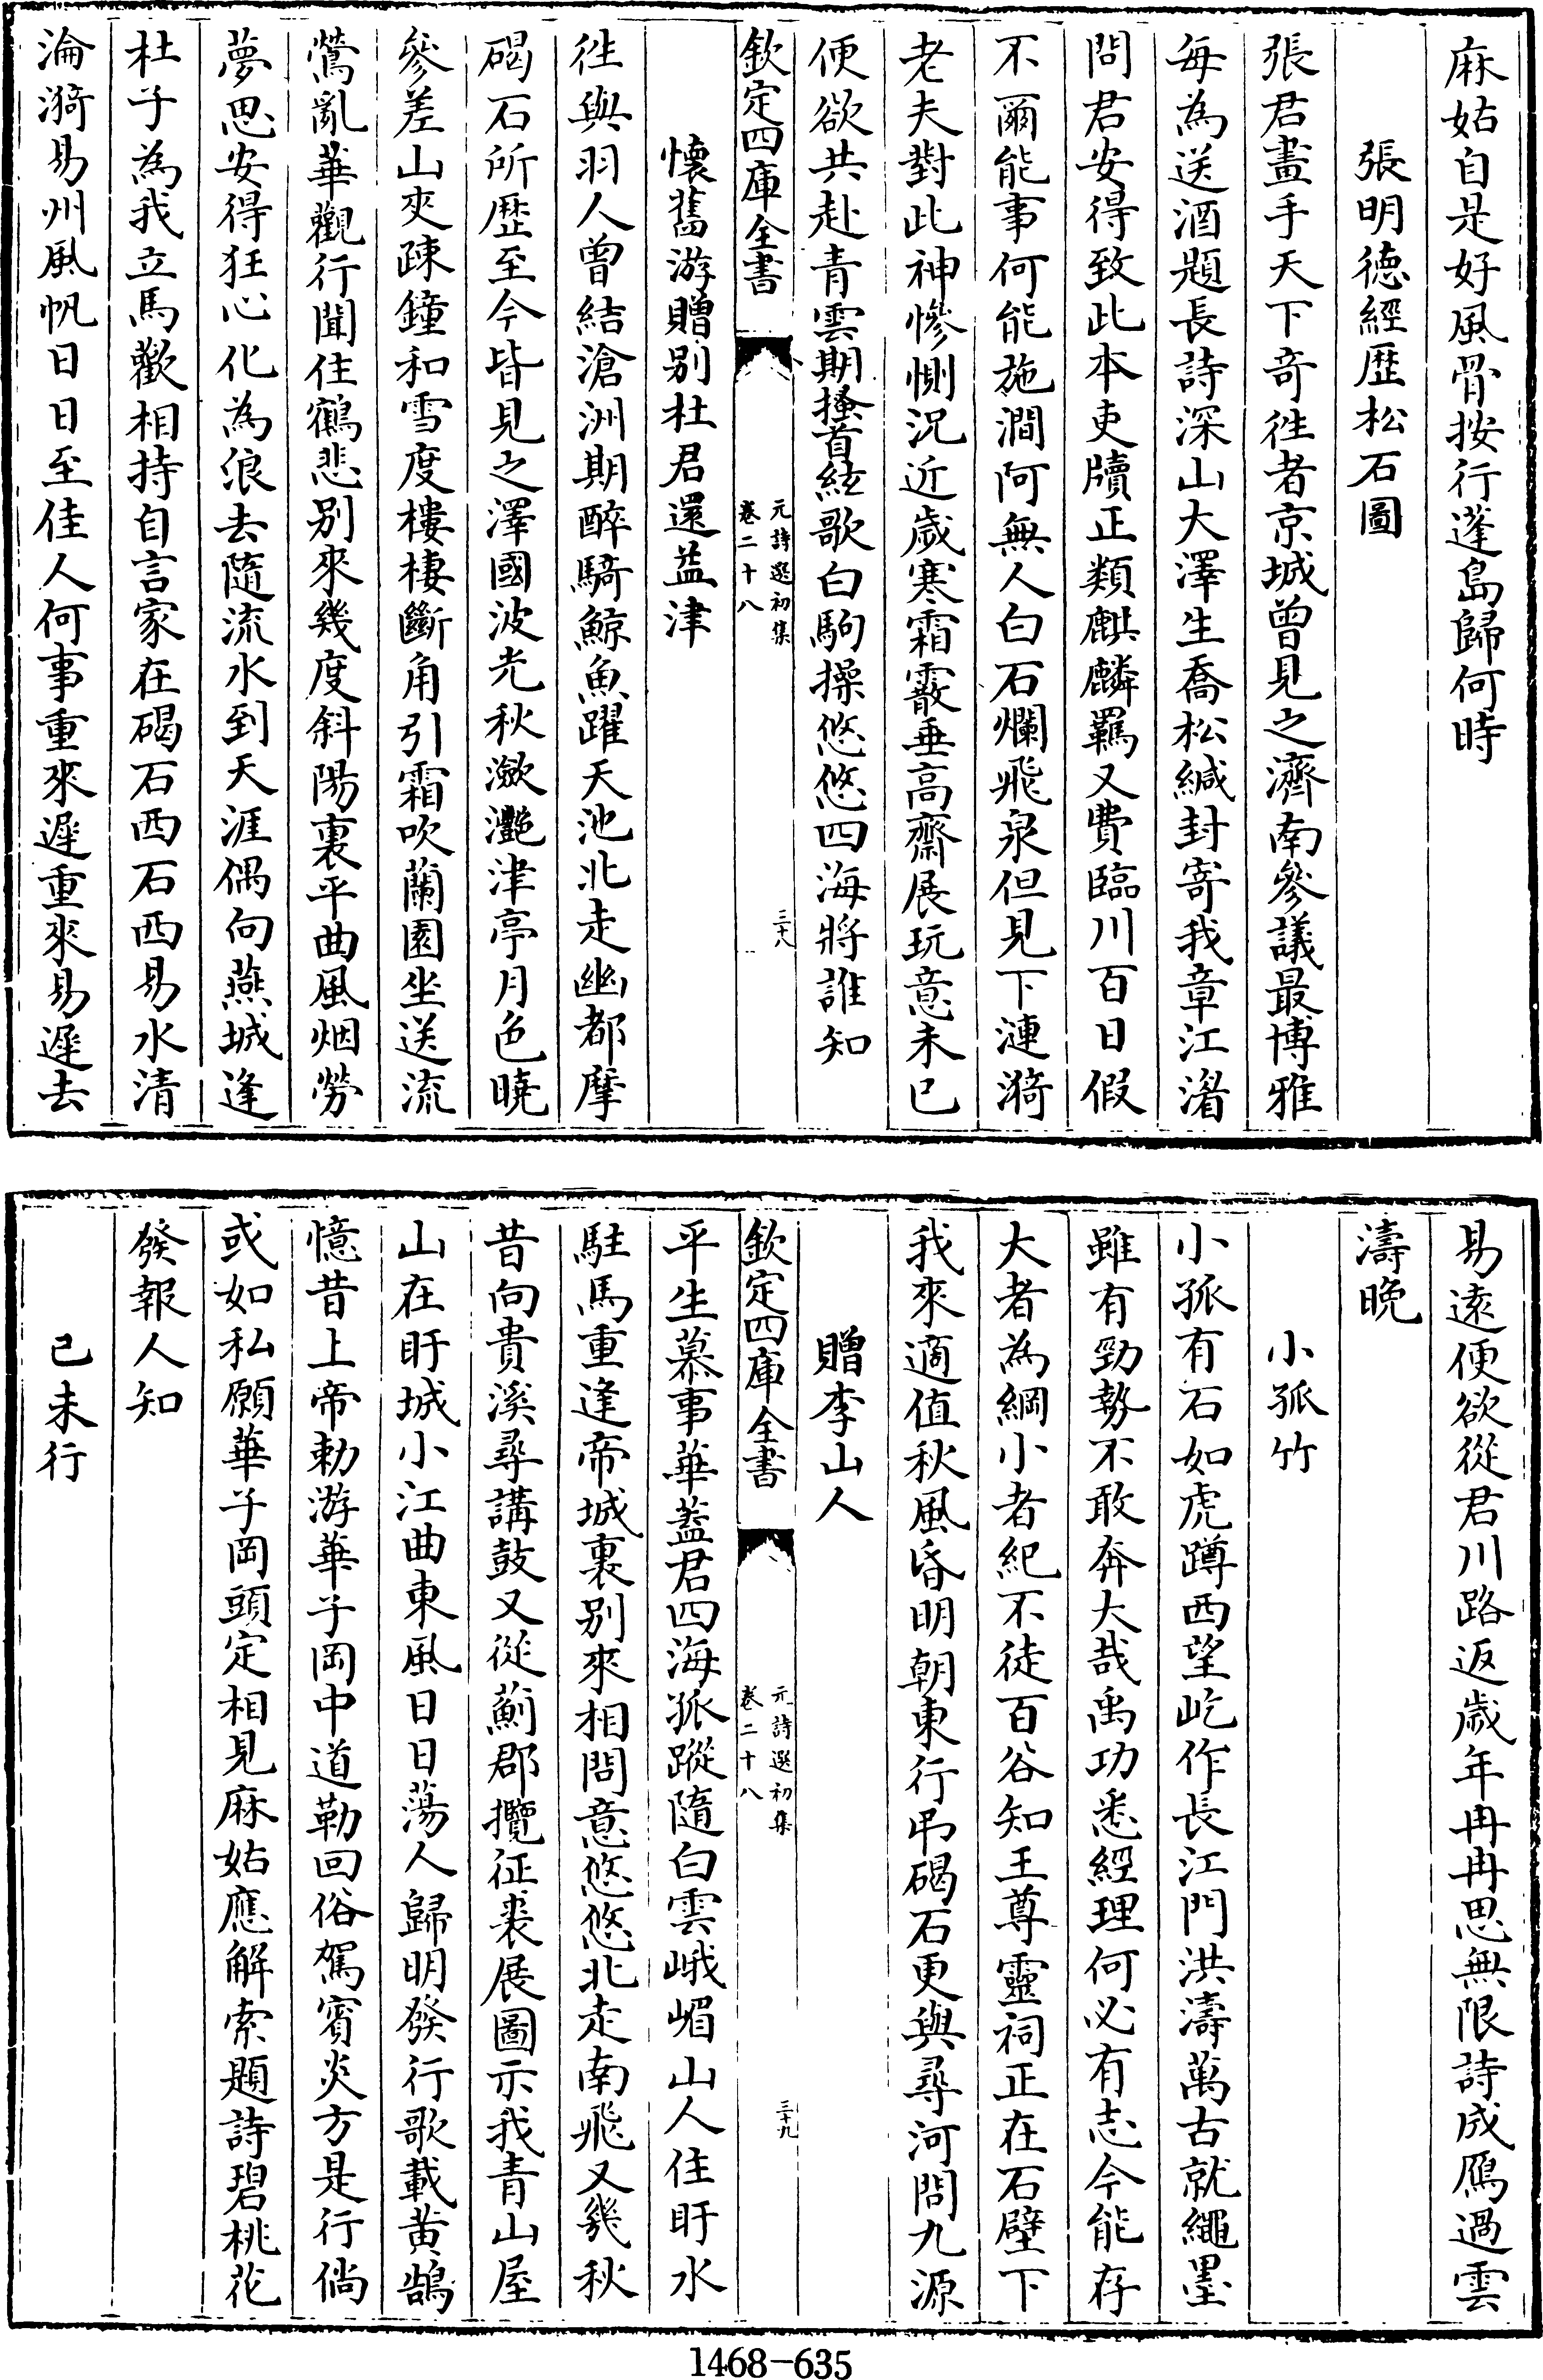 麻姑自是好風骨按行蓬島歸何時
張明徳經歴松石圖
張君畫手天下奇徃者京城曾見之濟南參議最博雅
每為送酒題長詩深山大澤生喬松緘封寄我章江渚
問君安得致此本吏牘正類麒麟羈又費臨川百日假
不爾能事何能施澗阿無人白石爛飛泉但見下漣漪
老夫對此神慘惻況近歲寒霜霰垂高齋展玩意未已
便欲共赴青雲期搔首絃歌白駒操悠悠四海將誰知
欽定四庫全書
元詩選初集
卷二十八
三十八
懷舊游贈别杜君還益津
徃與羽人曾結滄洲期醉騎鯨魚躍天池北走幽都摩
碣石所歴至今皆見之澤國波光秋瀲灧津亭月色曉
參差山夾疎鐘和雪度樓棲斷角引霜吹蘭園坐送流
鶯亂華觀行聞住鶴悲别來幾度斜陽裏平曲風烟勞
夢思安得狂心化為浪去隨流水到天涯偶向燕城逢
杜子為我立馬歡相持自言家在碣石西石西易水清
淪漪易州風帆日日至佳人何事重來遲重來易遲去
易逺便欲從君川路返歲年冉冉思無限詩成鴈過雲
濤晚
小孤竹
小孤有石如虎蹲西望屹作長江門洪濤萬古就繩墨
雖有勁勢不敢奔大哉禹功悉經理何必有志今能存
大者為綱小者紀不徒百谷知王尊靈祠正在石壁下
我來適值秋風昏明朝東行弔碣石更與尋河問九源
贈李山人
欽定四庫全書
元詩選初集
卷二十八
三十九
平生慕事華蓋君四海孤蹤隨白雲峨嵋山人住盱水
駐馬重逢帝城裏别來相問意悠悠北走南飛又幾秋
昔向貴溪尋講鼓又從薊郡攬征裘展圖示我青山屋
山在盱城小江曲東風日日蕩人歸明發行歌載黄鵠
憶昔上帝勅游華子岡中道勒回俗駕賓炎方是行倘
或如私願華子岡頭定相見麻姑應解索題詩碧桃花
發報人知
已未行
1468-635